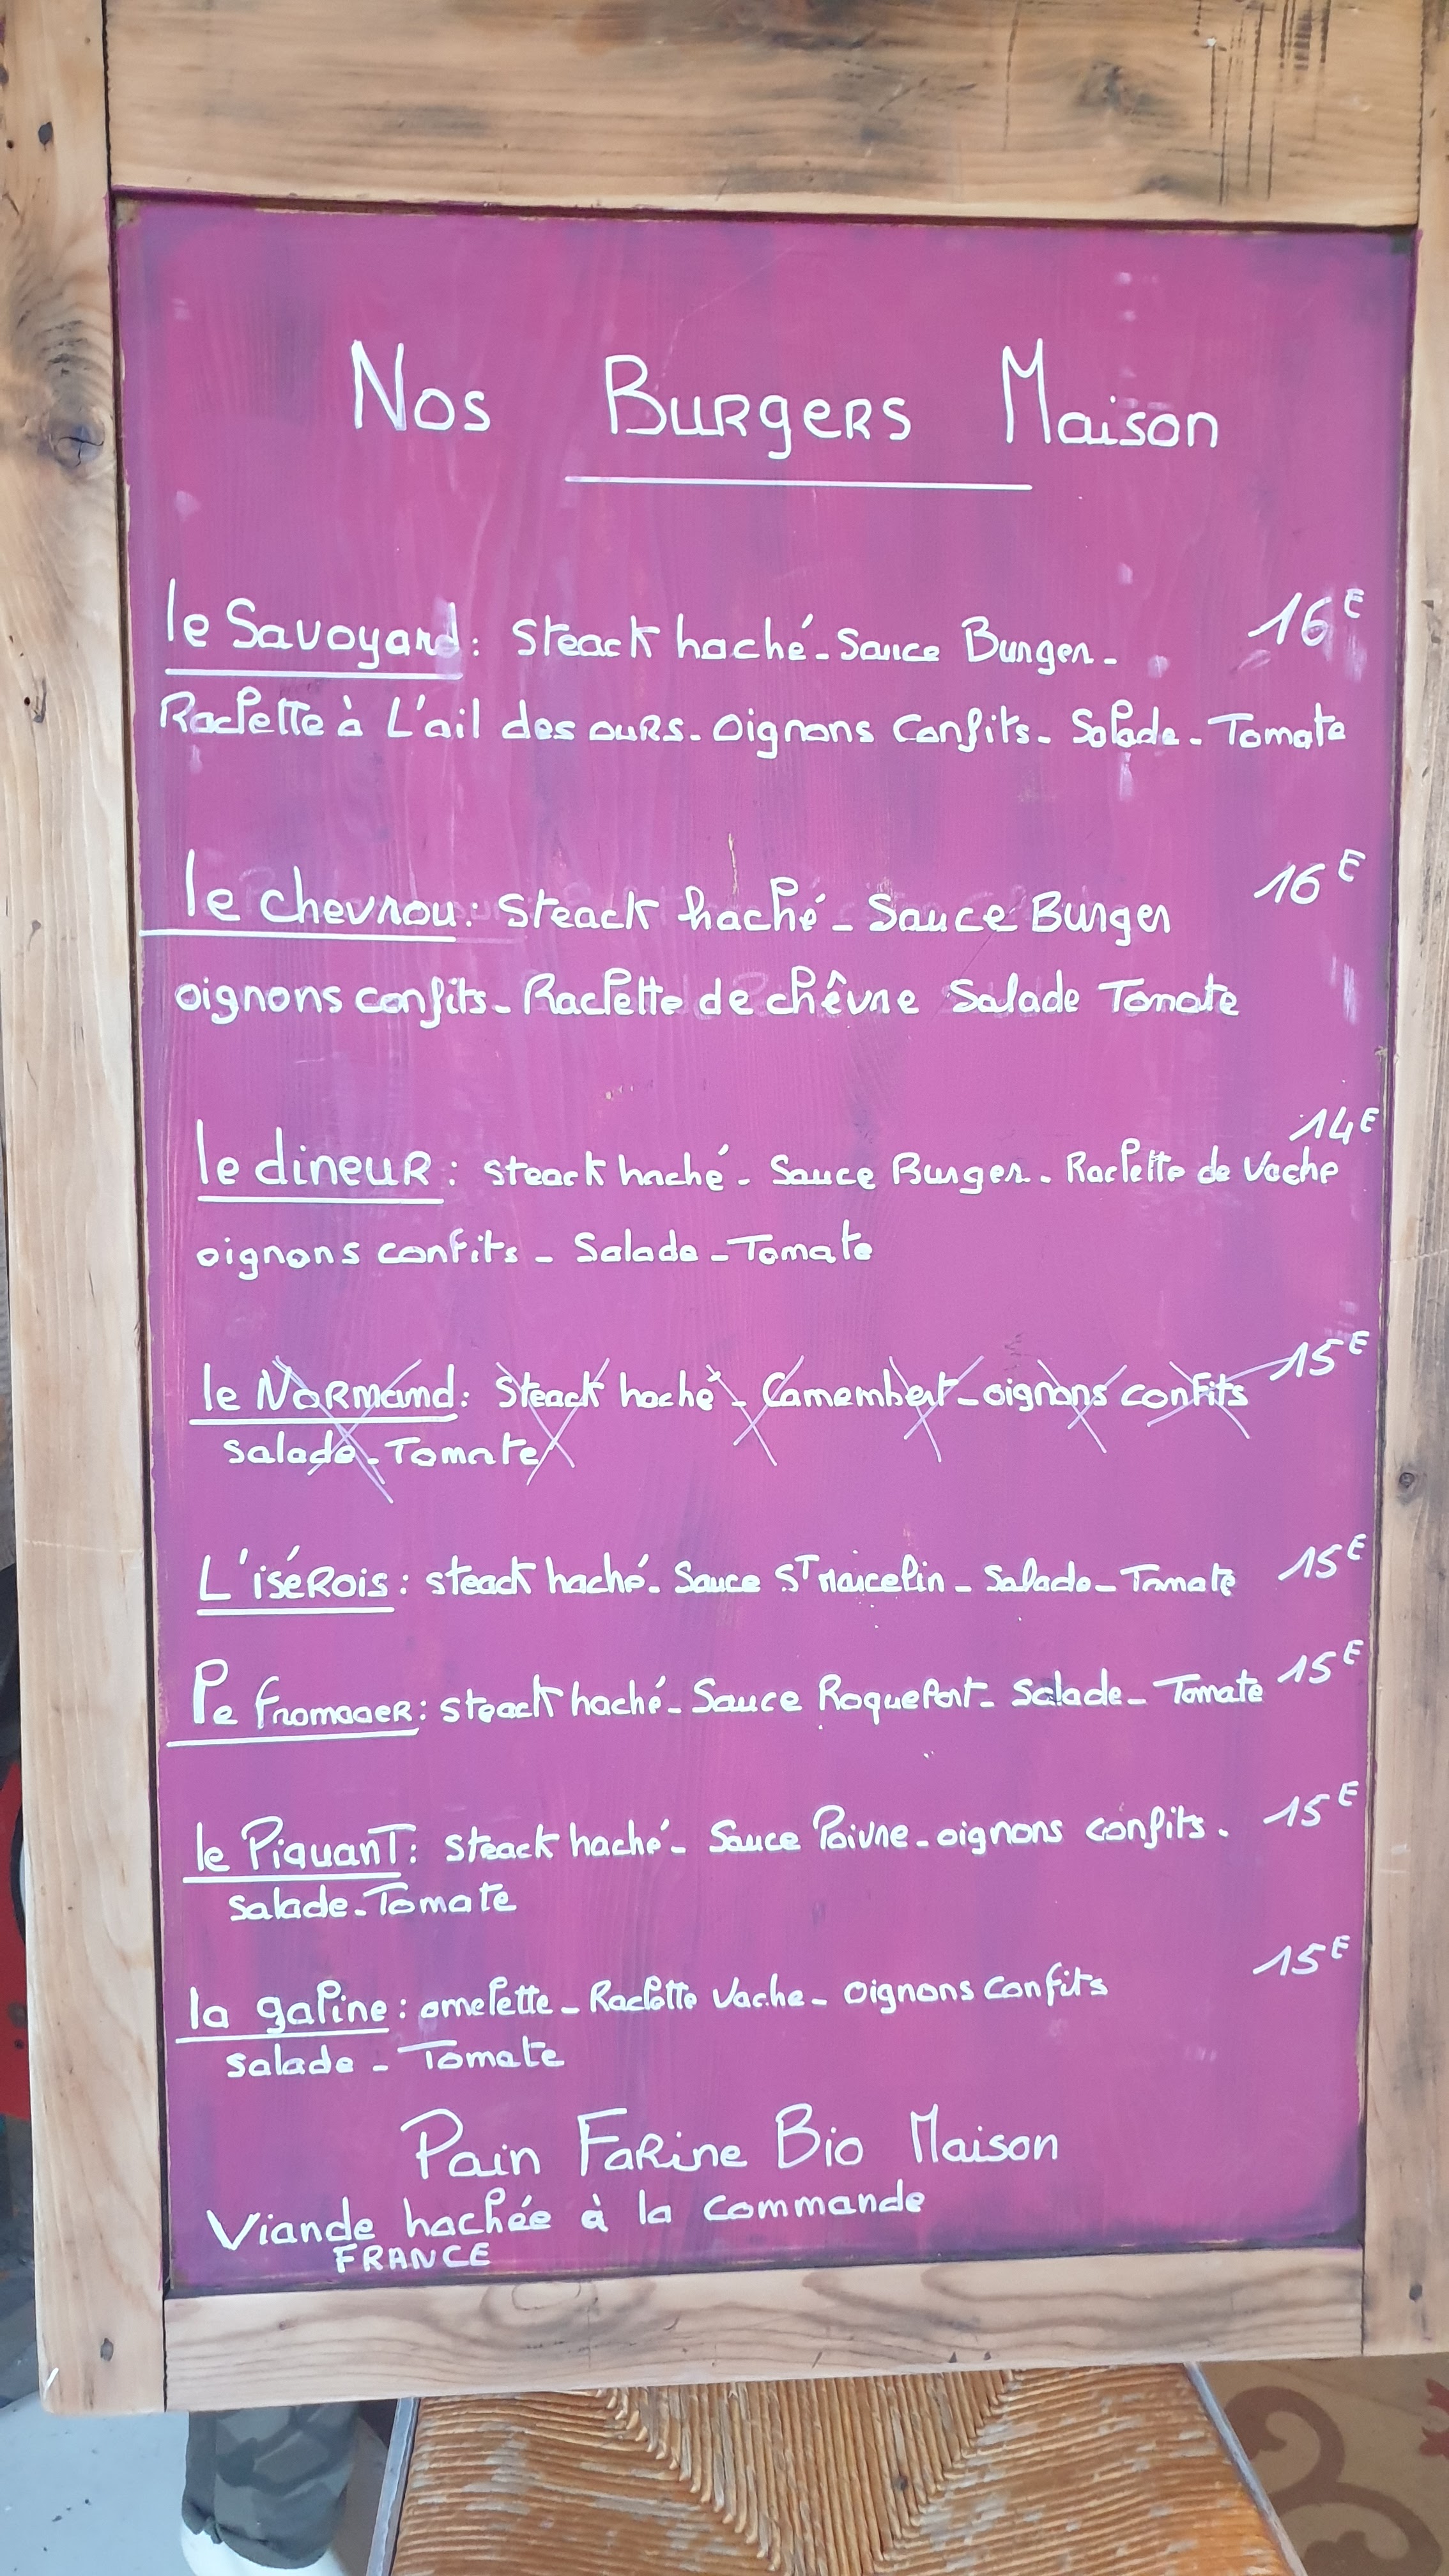 Nos Burgers Maison
le Savoyard : Steack haché - Sauce Burger - 16E
Raclette à L'ail des ours - Oignons Confits - Salade - Tomate
le chevrou : Steack haché - Sauce Burger 16E
oignons confits - Raclette de chêvre Salade Tomate
14E
le dineur : Steack haché - Sauce Burger - Raclette de Vache
oignons confits - Salade - Tomate
le Normand : Steack haché - Camembert - oignons confits 15E
salade - Tomate
L'isérois : steack haché - Sauce ST Marcelin - Salade - Tomate 15E
le fromager : steack haché - Sauce Roquefort - Salade - Tomate 15E
le Piquant : steack haché - Sauce Poivre - oignons confits . 15E
salade - Tomate
la galine : omelette - Raclette Vache - Oignons Confits 15E
salade - Tomate
Pain Farine Bio Maison
Viande hachée à la commande
FRANCE